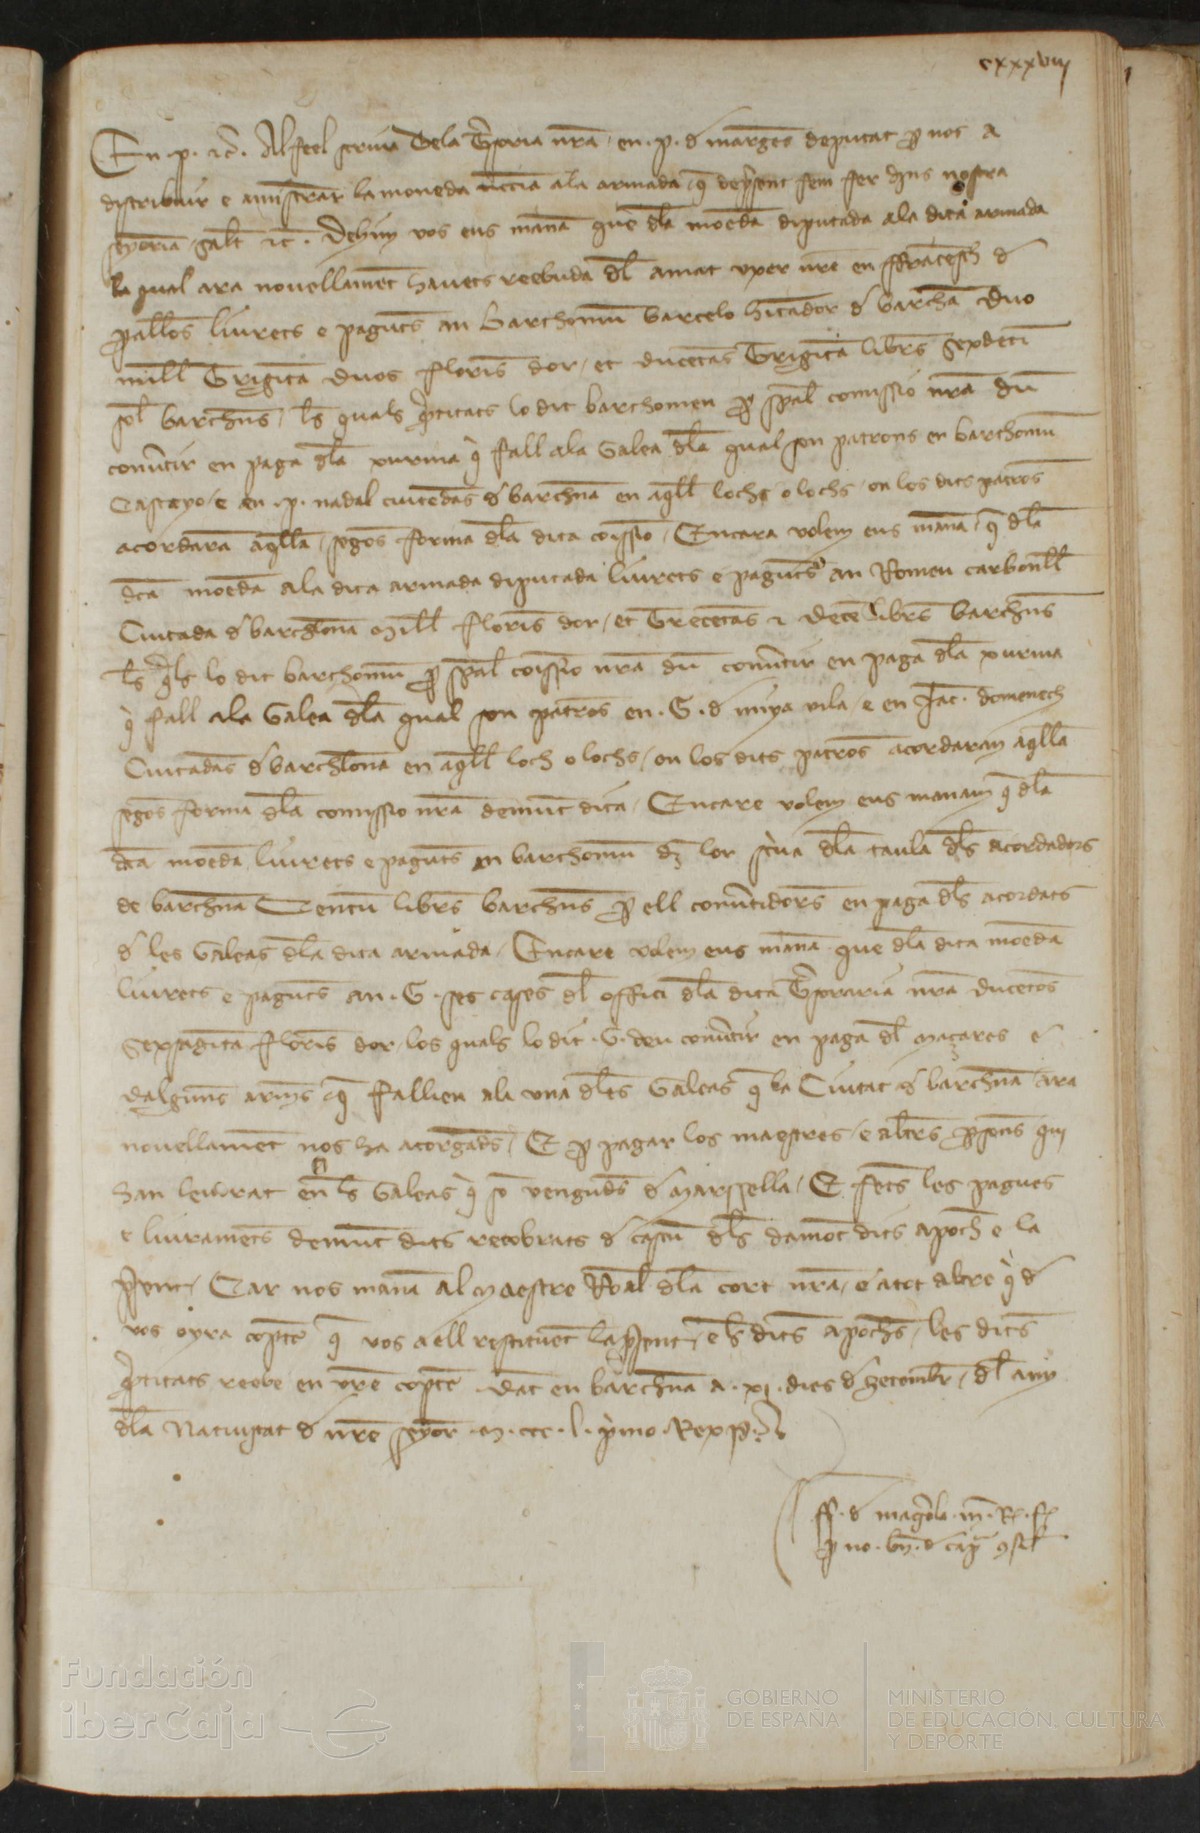 cxxxviij
En .p. etc. Al feel scriua dela Tresoria nra en .p. d marges deputat p nos a
distribuir e aministrar la moneda ala armada q de present fem fer dins nostra
seyoria salut etc. Dehim vos ens manam que dla moneda diputada ala dita armada
la qual ara nouellament hauets reebuda dl amat vxer nre en ffrancesch d
pallos liurets e paguets an Barthomeu barcelo hitador d barchna Duo
mill Triginta duos florins dor et ducentas Triginta libres sexdecim
sol barchns, ls quals quantitats lo dit barthomeu p spal comissio nra deu
conuertir en paga dla xurma q fall ala Galea dla qual son patrons en barthomeu
Castayo e en .p. nadal ciutedans d barchna en aqll loch o lochs on los dits patrons
acordaran aqlla segons forma dla dita comissio, Encara volem ens manam q dla
dta moneda ala dita armada diputada liurets e paguets an Romeu carbonell
Ciutada d barchelona Mill florins dor et Trecentas et decem libres barchns
ls qls lo dit barthomeu p spal comissio nra deu conuertir en paga dla xurma
q fall ala Galea dla qual son patrons en .G. d minya vila e en Jac. domenech
Ciutadans d barchelona en aqll loch o lochs on los dits patrons acordaran aqlla
segons forma dla comissio nra demunt dita, Encare volem ens manam q dla
dta moneda liurets e paguets an barthomeu lor scriua dla taula dls acordadors
de barchna Centum libres barchns p ell conuertidors en paga dls acordats
d les Galeas dla dita armada, Encare volem ens manam que dla dita moneda
liurets e paguets an .G. ses cases dl offici dla dita Tresoraria nra ducentos
Sexsaginta florins dor los quals lo dit .G. deu conuertir en paga dl e
dalguns q fallien ala vna dles Galeas q la Ciutat d barchna ara
nouellament nos ha atorgades, E p pagar los maestres e altres persones qui
han leuorat en ls Galeas q so vengudes d Marssella, E fets les pagues
e liuraments demunt dits recobrats d cascu dls damont dits apoch e la
present, Car nos manam al Maestre Ronal dla cort nra e a tot altre q d
vos oyra compte q vos a ell restituent la present e ls dits apochs, les dits
quantitats reebe en vre compte. Dat en barchna a .xj. dies d Setembre dl any
dla Natiuitat d nre seyor .M.ccc.l. primo. Rex P.
ff. d magrola
Fundación
iberCaja
GOBIERNO
DE ESPAÑA
MINISTERIO
DE EDUCACIÓN, CULTURA
Y DEPORTE